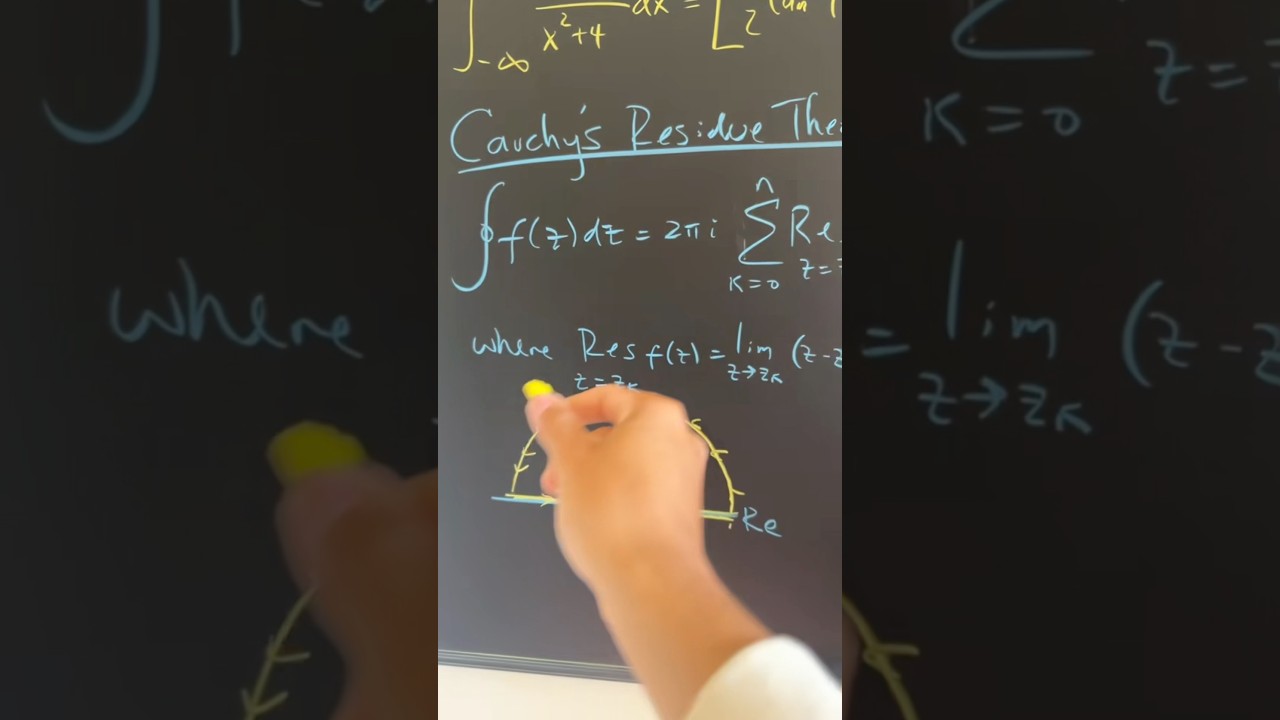 ∫_{-∞} / x²+4 dx = [ 2
Cauchy's Residue The
∮ f(z)dz = 2πi Σ_{K=0}^{n} Re z=
where Res_{z=z_K} f(z) = lim_{z→z_K} (z-z
Re